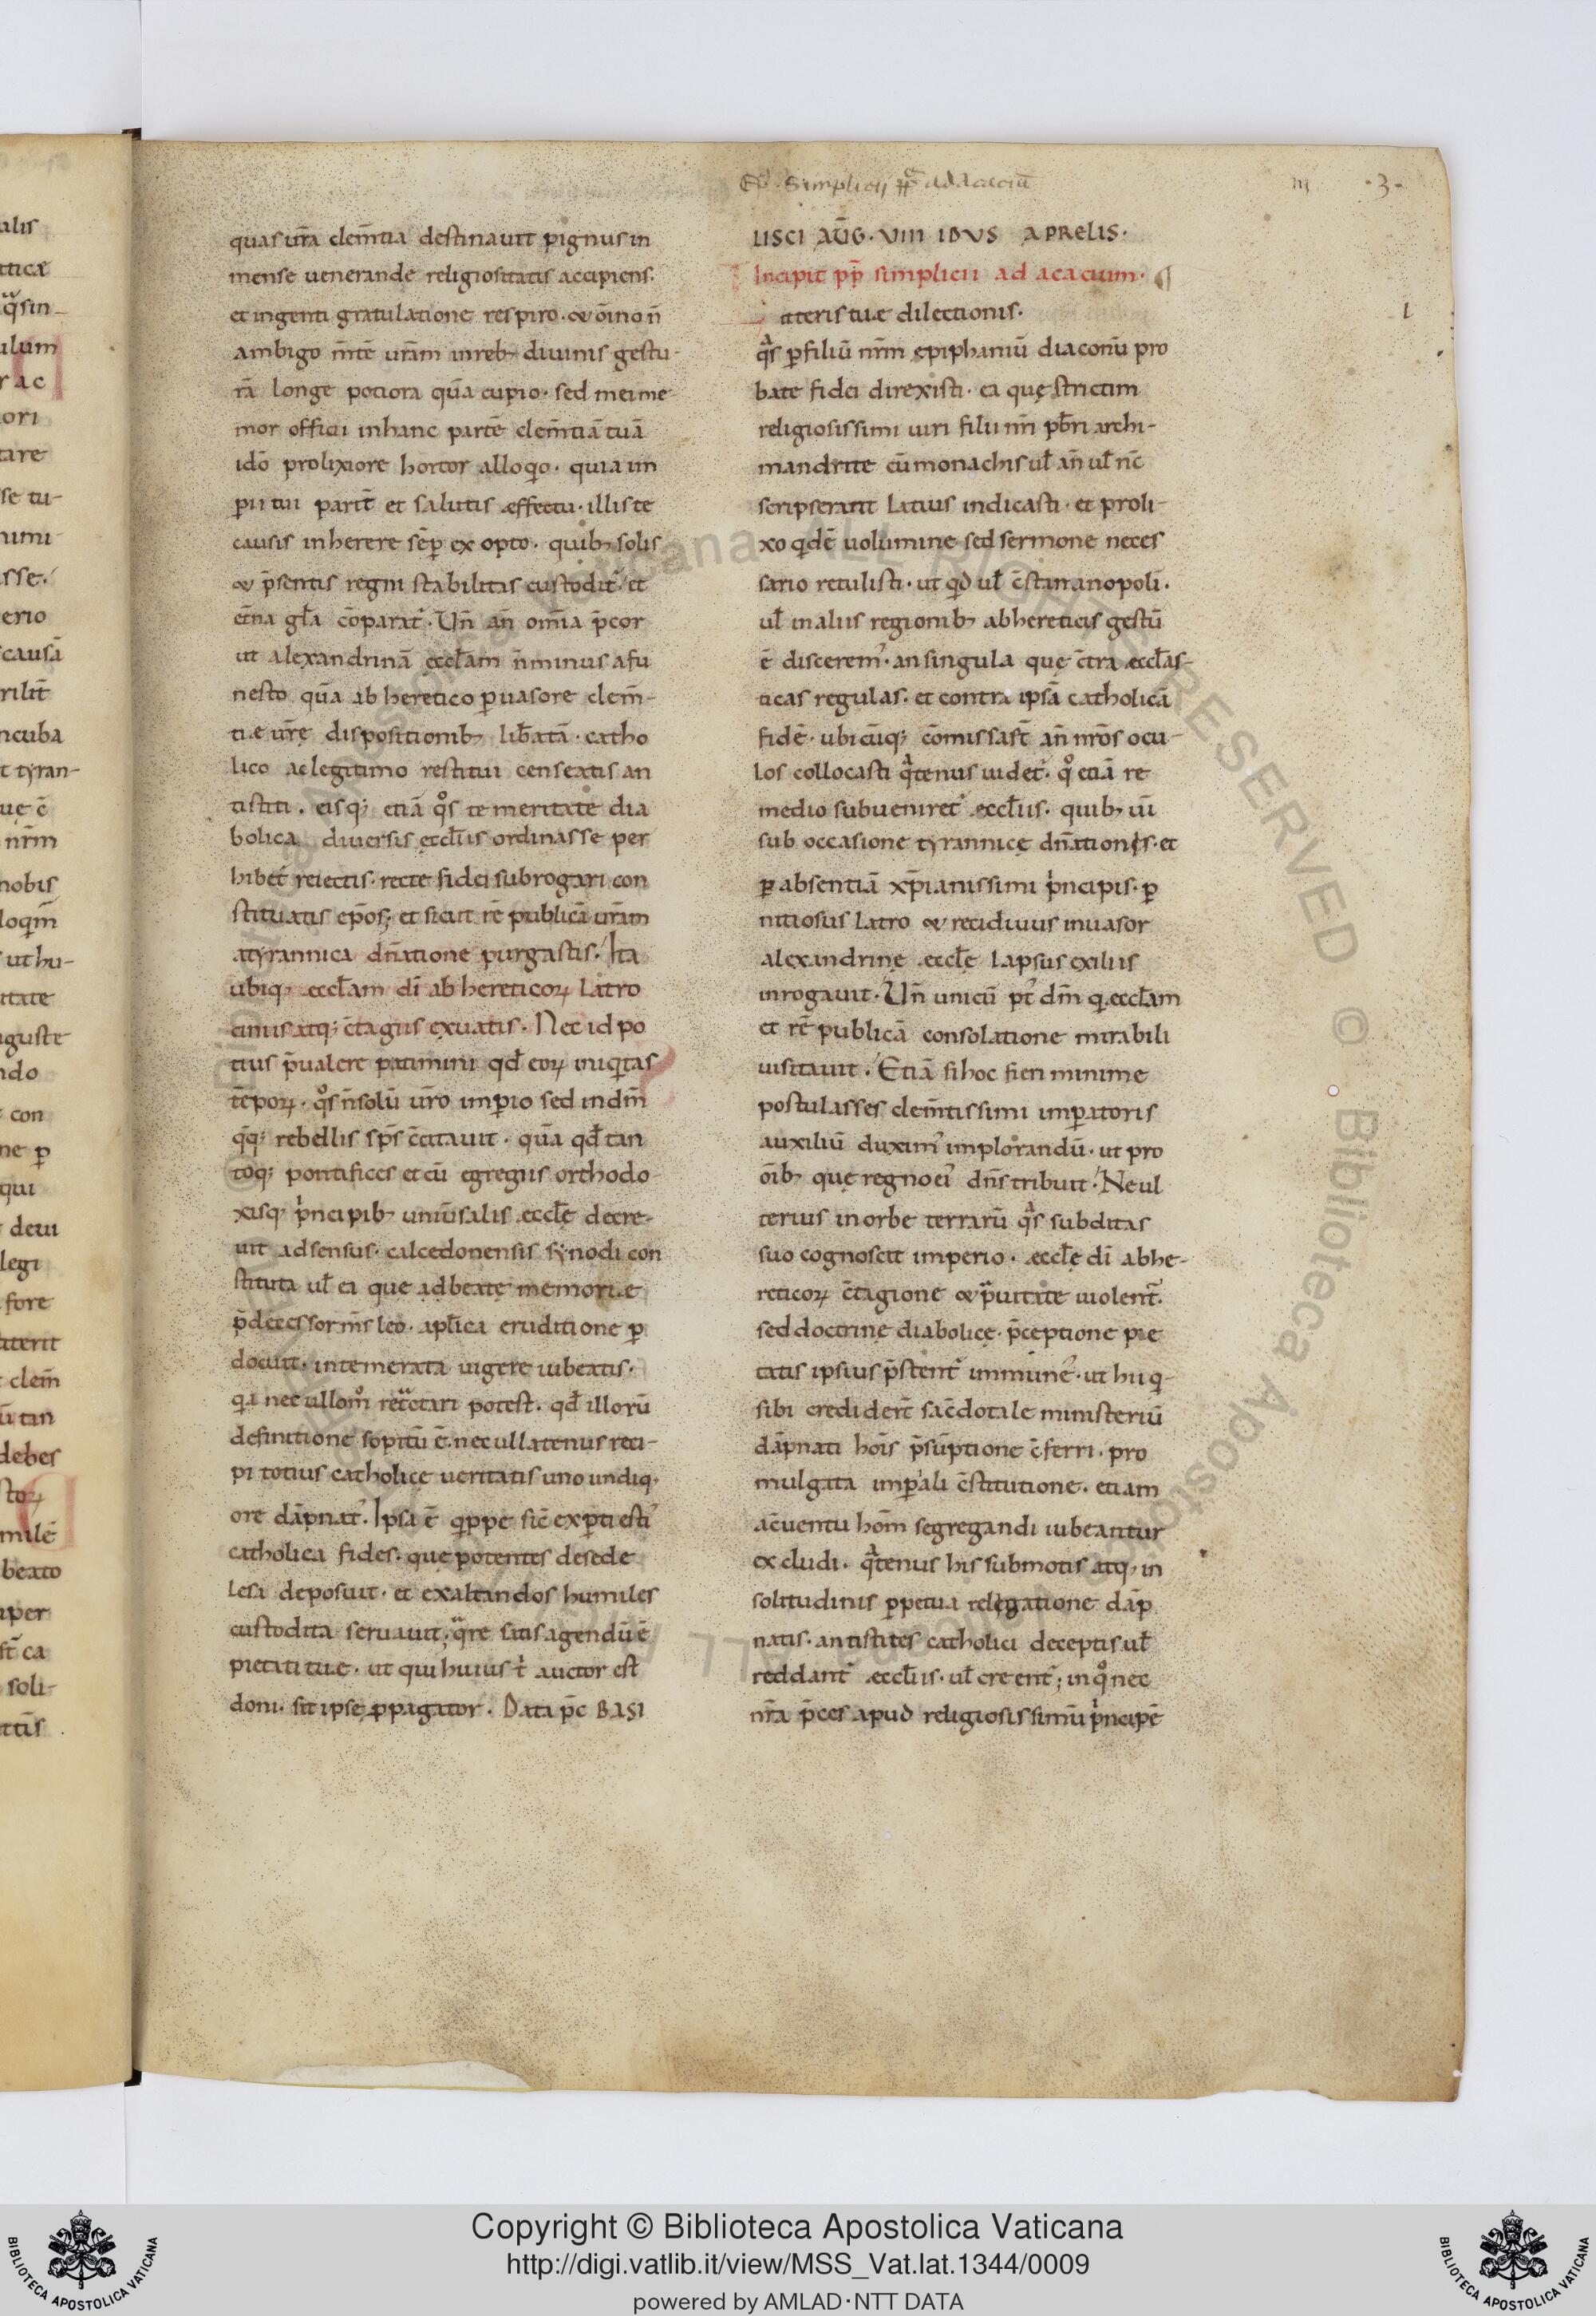 Ep̄. Simplicij pp̄ ad Acaciū
m
·3·
quas ur̄a clem̄tia destinauit pignus in
mense uenerande religiositatis accipiens.
et ingenti gratulatione respiro. & om̄ino ñ
ambigo m̄te ur̄am inreb; diuinis gestu-
rā longe potiora quā cupio. sed mei me-
mor officii inhanc partē clem̄tiā tuā
idō prolixiore hortor alloqio. quia im
pii tui parit̄ et salutis effectu. illis te
causis inherere sēp exopto. quib; solis
& p̄sentis regni stabilitas custodit̄. et
et̄na gl̄a c̄parat̄. Un̄ an̄ om̄ia p̄cor
ut alexandrinā eccl̄am n̄minus afu
nesto quā ab heretico puasore clem̄-
tiæ ur̄ę dispositionib; lib̄atā. catho
lico aclegitimo restitui censeatis an
tistiti. eisq; etiā qo̊s temeritate dia
bolica diuersis eccl̄iis ordinasse per
hibet̄ reiectis. recte fidei subrogari con
stituatis ep̄os; et sicut rē publicā ur̄am
atyrannica dn̄atione purgastis. Ita
ubiq; eccl̄am dī ab hereticoꝝ latro
ciniis atq; c̄tagiis exuatis. Nec id po
tius p̄ualere patimini qd̄ eoꝝ iniqitas
tēpoꝝ. qo̊s n̄solū ur̄o imperio sed indm̄
qq; rebellis sp̄s c̄citauit. quā qd̄ tan
toq; pontifices etcū egregiis orthodo-
xisq; pͥncipib; uniūsalis eccl̄ę decre-
uit adsensus. calcedonensis synodi con
stituta ul̄ ea que adbeatę memoriæ
p̄decessor m̄s leo. apl̄ica eruditione ꝑ
docuit. intemerata uigere iubeatis.
qia nec ullom̊ ret̄ctari potest. qd̄ illorū
definitione sopitū ē. necullatenus reci-
pi totius catholice ueritatis uno undiq;
ore dāpnat̄. Ipsa ē qippe sic̄ expti estis
catholica fides. que potentes desede
lesa deposuit. et exaltandos humiles
custodita seruauit; qͣre sitis agendū ē
pietati tuæ. ut qui huius t̄ auctor est
doni. sit ipse ꝓpagator. Data p̄c BASI
LISCI AŪG. VIII IDVS APRELIS.
Incipit pp̄ simplicii ad acacium. ¶
itteris tuæ dilectionis.
qͣs pfiliū nr̄m epiphaniū diaconū pro
bate fidei direxisti. ea quę strictim
religiosissimi uiri filii nr̄i pb̄ri archi-
mandrite cūmonachis ul̄ an̄ ul̄ nc̄
scripserant latius indicasti. et proli-
xo qidē uolumine sed sermone neces
sario retulisti. ut qid ul̄ c̄stantinanopolī.
ul̄ inaliis regionib; abhereticis gestū
ē discerem̄. ansingula quę c̄tra eccl̄as-
ticas regulas. et contra ipsā catholicā
fidē. ubicūq; c̄missast̄ an̄ nr̄os ocu-
los collocasti qͣtenus uidet̄. qo̊ etiā re
medio subueniret̄ eccl̄iis. quib; uī
sub occasione tyrannice dn̄ationis. et
ꝑ absentiā xp̄ianissimi pͥncipis. ꝑ
nitiosus latro & recidiuus inuasor
alexandrinę eccl̄ę lapsus exiliis
inrogauit. Un̄ unicū pt̄ dm̄ q. eccl̄am
et rē publicā consolatione mirabili
uisitauit. Etiā sihoc fieri minime
postulasses clem̄tissimi imperatoris
auxiliū duxim̄ implorandū. ut pro
ōib; quę regno ei̓ dn̄s tribuit. Ne ul
terius inorbe terrarū qͣs subditas
suo cognoscit imperio. eccl̄ę dī abhe-
reticoꝝ c̄tagione & p̄uitate uiolent̄.
sed doctrinę diabolicę. p̄ceptione pie
tatis ipsius p̄stent̄ immune̓. ut hii q-
sibi credidert̄ sac̄dotale ministeriū
dāpnati hoīs p̄sūptione c̄ferri. pro
mulgata imperiali c̄stitutione. etiam
ac̄uentu hom̄ segregandi iubeantur
excludi. qͣtenus his submotis atq; in
solitudinis ppetua relegatione dāp
natis. antistites catholici deceptis ul̄
reddant̄ eccl̄iis. ul̄ creent̄; in qo̊ nec
nr̄a p̄ces apud religiosissimū pͥncipē
Copyright © Biblioteca Apostolica Vaticana
http://digi.vatlib.it/view/MSS_Vat.lat.1344/0009
powered by AMLAD·NTT DATA